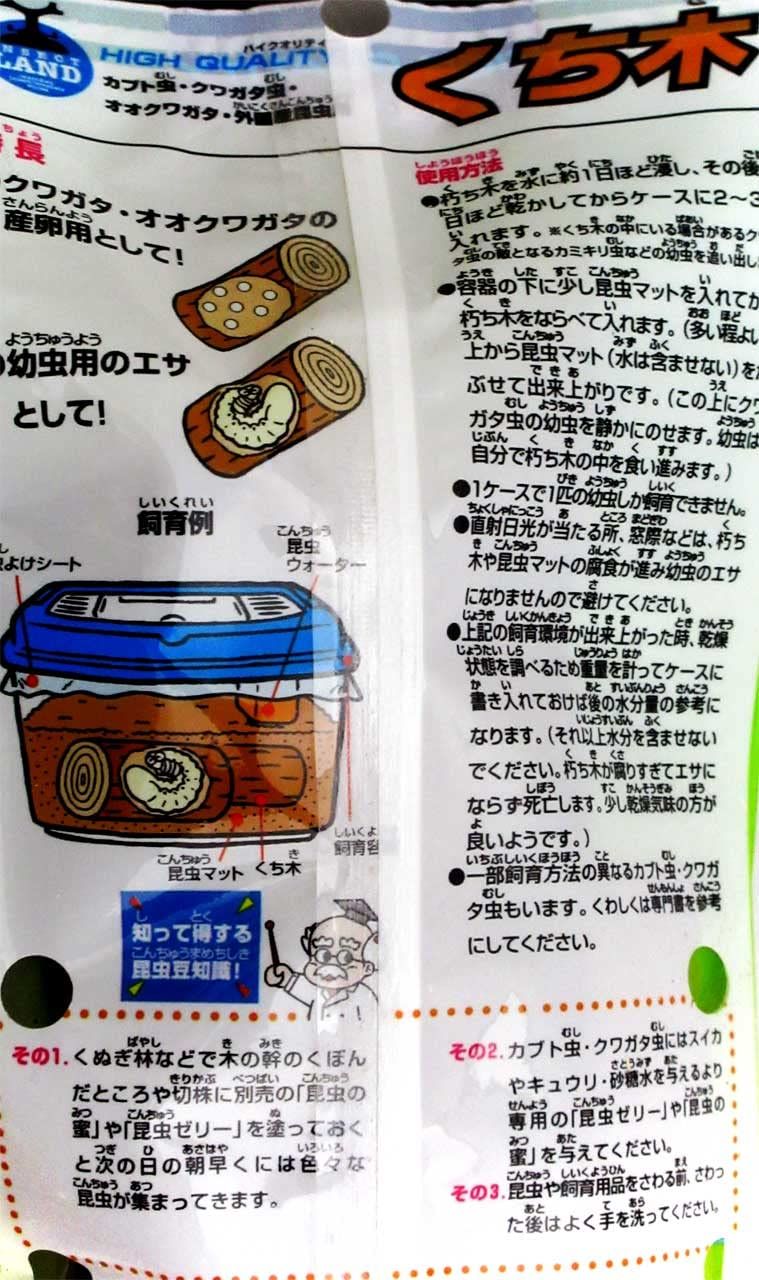 INSECT
LAND
HIGH QUALITY
ハイクオリティ
カブト虫・クワガタ虫・
オオクワガタ・外国産昆虫
くち木
特長
クワガタ・オオクワガタの
産卵用として!
の幼虫用のエサ
として!
飼育例
虫よけシート
昆虫
ウォーター
昆虫マット
くち木
飼育容
使用方法
●朽ち木を水に約1日ほど浸し、その後
日ほど乾かしてからケースに2～3
入れます。※くち木の中にいる場合があるク
タ虫の敵となるカミキリ虫などの幼虫を追い出し
●容器の下に少し昆虫マットを入れてか
朽ち木をならべて入れます。(多い程よい
上から昆虫マット(水は含ませない)を
ぶせて出来上がりです。(この上にクワ
ガタ虫の幼虫を静かにのせます。幼虫は
自分で朽ち木の中を食い進みます。)
●1ケースで1匹の幼虫しか飼育できません。
●直射日光が当たる所、窓際などは、朽ち
木や昆虫マットの腐食が進み幼虫のエサ
になりませんので避けてください。
●上記の飼育環境が出来上がった時、乾燥
状態を調べるため重量を計ってケースに
書き入れておけば後の水分量の参考に
なります。(それ以上水分を含ませない
でください。朽ち木が腐りすぎてエサに
ならず死亡します。少し乾燥気味の方が
良いようです。)
●一部飼育方法の異なるカブト虫・クワガ
タ虫もいます。くわしくは専門書を参考
にしてください。
知って得する
昆虫豆知識!
その1.くぬぎ林などで木の幹のくぼん
だところや切株に別売の「昆虫の
蜜」や「昆虫ゼリー」を塗っておく
と次の日の朝早くには色々な
昆虫が集まってきます。
その2.カブト虫・クワガタ虫にはスイカ
やキュウリ・砂糖水を与えるより
専用の「昆虫ゼリー」や「昆虫の
蜜」を与えてください。
その3.昆虫や飼育用品をさわる前、さわっ
た後はよく手を洗ってください。